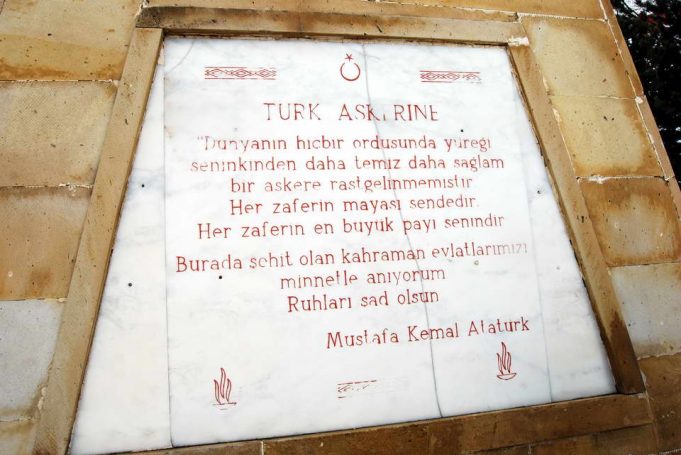 TÜRK ASKERİNE
"Dünyanın hiçbir ordusunda yüreği
seninkinden daha temiz daha sağlam
bir askere rastgelinmemiştir.
Her zaferin mayası sendedir.
Her zaferin en büyük payı senindir
Burada şehit olan kahraman evlatlarımızı
minnetle anıyorum
Ruhları şad olsun
Mustafa Kemal Atatürk